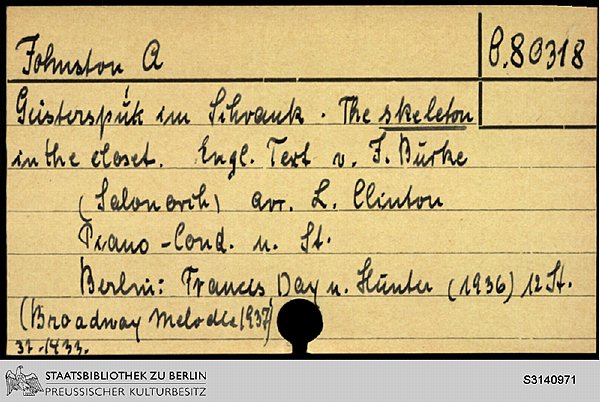 Johnston A
O.80318
Geisterspuk im Schrank. The skeleton
in the closet. Engl. Text v. J. Burke
(Salonorch) arr. L. Clinton
Piano-Cond. u. St.
Berlin: Francis Day u. Hunter (1936) 12 St.
(Broadway Melodie 1937)
37.1433.
STAATSBIBLIOTHEK ZU BERLIN
PREUSSISCHER KULTURBESITZ
S3140971